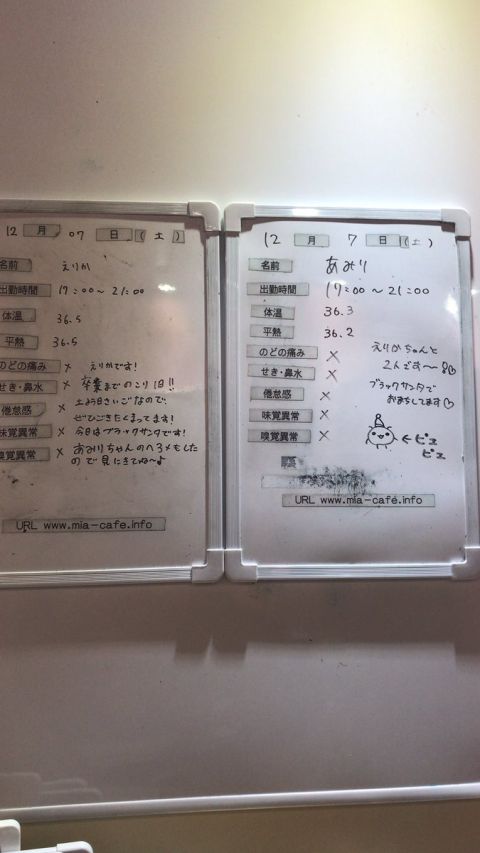 12 月 07 日 (土)
名前 えりか
出勤時間 17:00～21:00
体温 36.5
平熱 36.5
のどの痛み × えりかです!
せき・鼻水 × 卒業までのこり1日!!
倦怠感 × 土よう日さいごなので、
味覚異常 × ぜひごきたくまってます!
嗅覚異常 × 今日はブラックサンタです!
あみりちゃんのヘアメもした
ので見にきてね～♪
URL www.mia-cafe.info
12 月 7 日 (土)
名前 あみり
出勤時間 17:00～21:00
体温 36.3
平熱 36.2
のどの痛み ×
せき・鼻水 ×
倦怠感 ×
味覚異常 ×
嗅覚異常 ×
えりかちゃんと
2人です～!♡
ブラックサンタで
おまちしてます♡
←ピヨ
ピヨ
URL www.mia-cafe.info